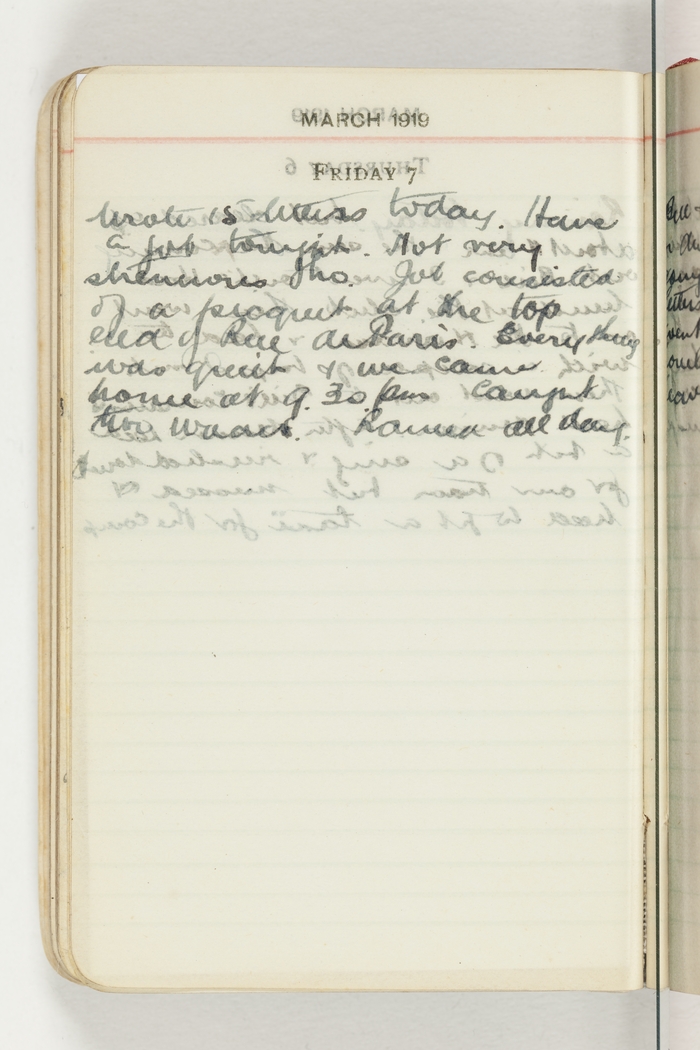 MARCH 1919
FRIDAY 7
Wrote 15 letters today. Have
a job tonight. Not very
strenuous tho. Job consisted
of a picquet at the top
end of Rue de Paris. Everything
was quiet & we came
home at 9.30 pm Caught
two Waacs. Rained all day.